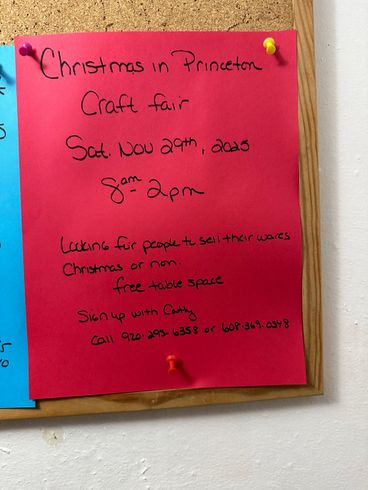 Christmas in Princeton
Craft fair
Sat. Nov 29th, 2025
8am - 2pm
Looking for people to sell their wares
Christmas or non.
free table space
Sign up with Cathy
Call 920-293-6358 or 608-369-0348